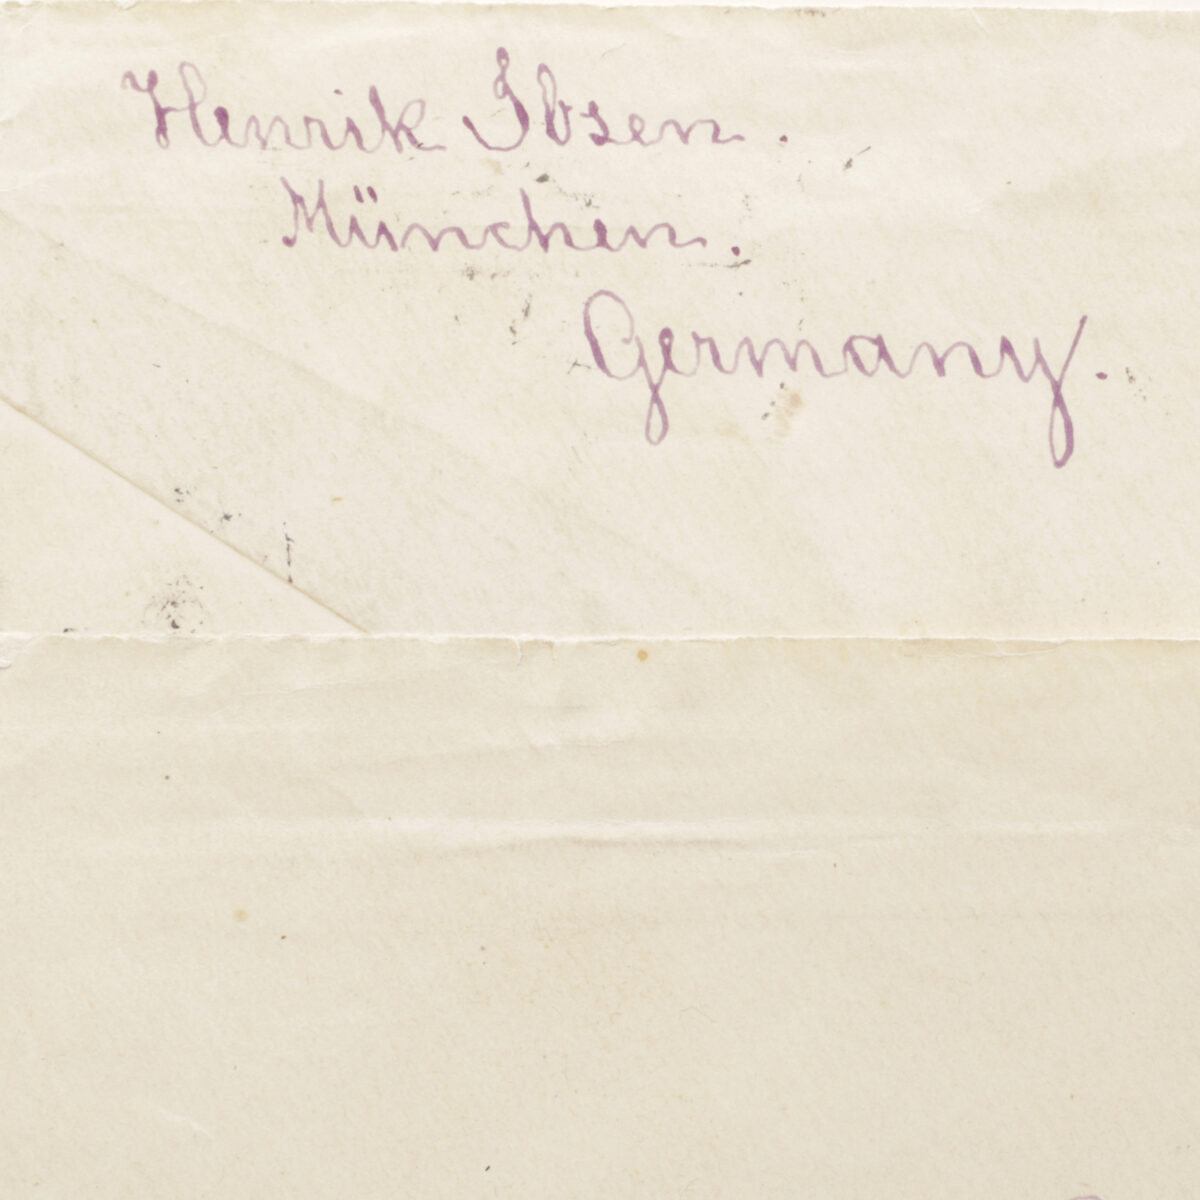 Henrik Ibsen.
München.
Germany.